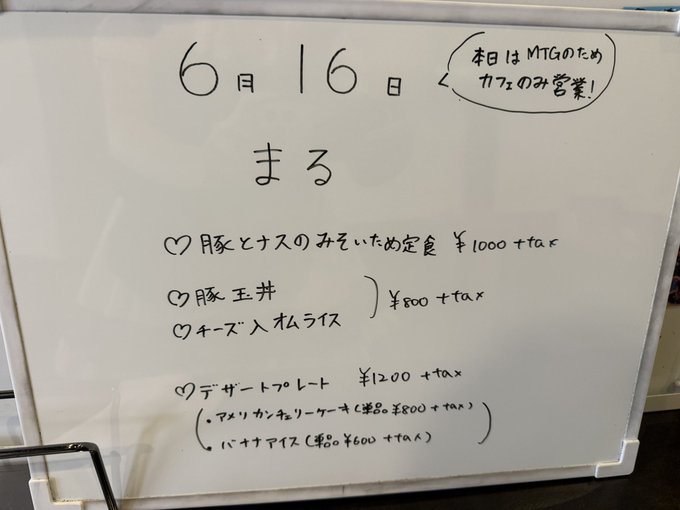 6月16日
本日はMTGのため
カフェのみ営業!
まる
♡豚とナスのみそいため定食 ¥1000+tax
♡豚玉丼
¥800+tax
♡チーズ入オムライス
♡デザートプレート ¥1200+tax
(・アメリカンチェリーケーキ(単品¥800+tax)
・バナナアイス(単品¥600+tax))